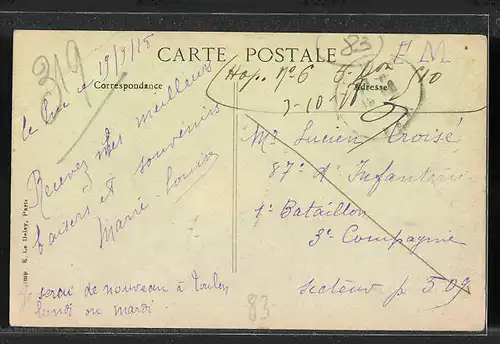 319
CARTE POSTALE
83
F M
Correspondance
Adresse
Hop. n° 6
3-10-
le 19/9/18
Recevez mes meilleurs
baisers et souvenirs
Marie-Louise
Mr Lucien Croisé
87e d'Infanterie
1e Bataillon
3e Compagnie
Secteur p 509
serai de nouveau à Toulon
lundi ou mardi.
83
Imp. E. Le Deley, Paris